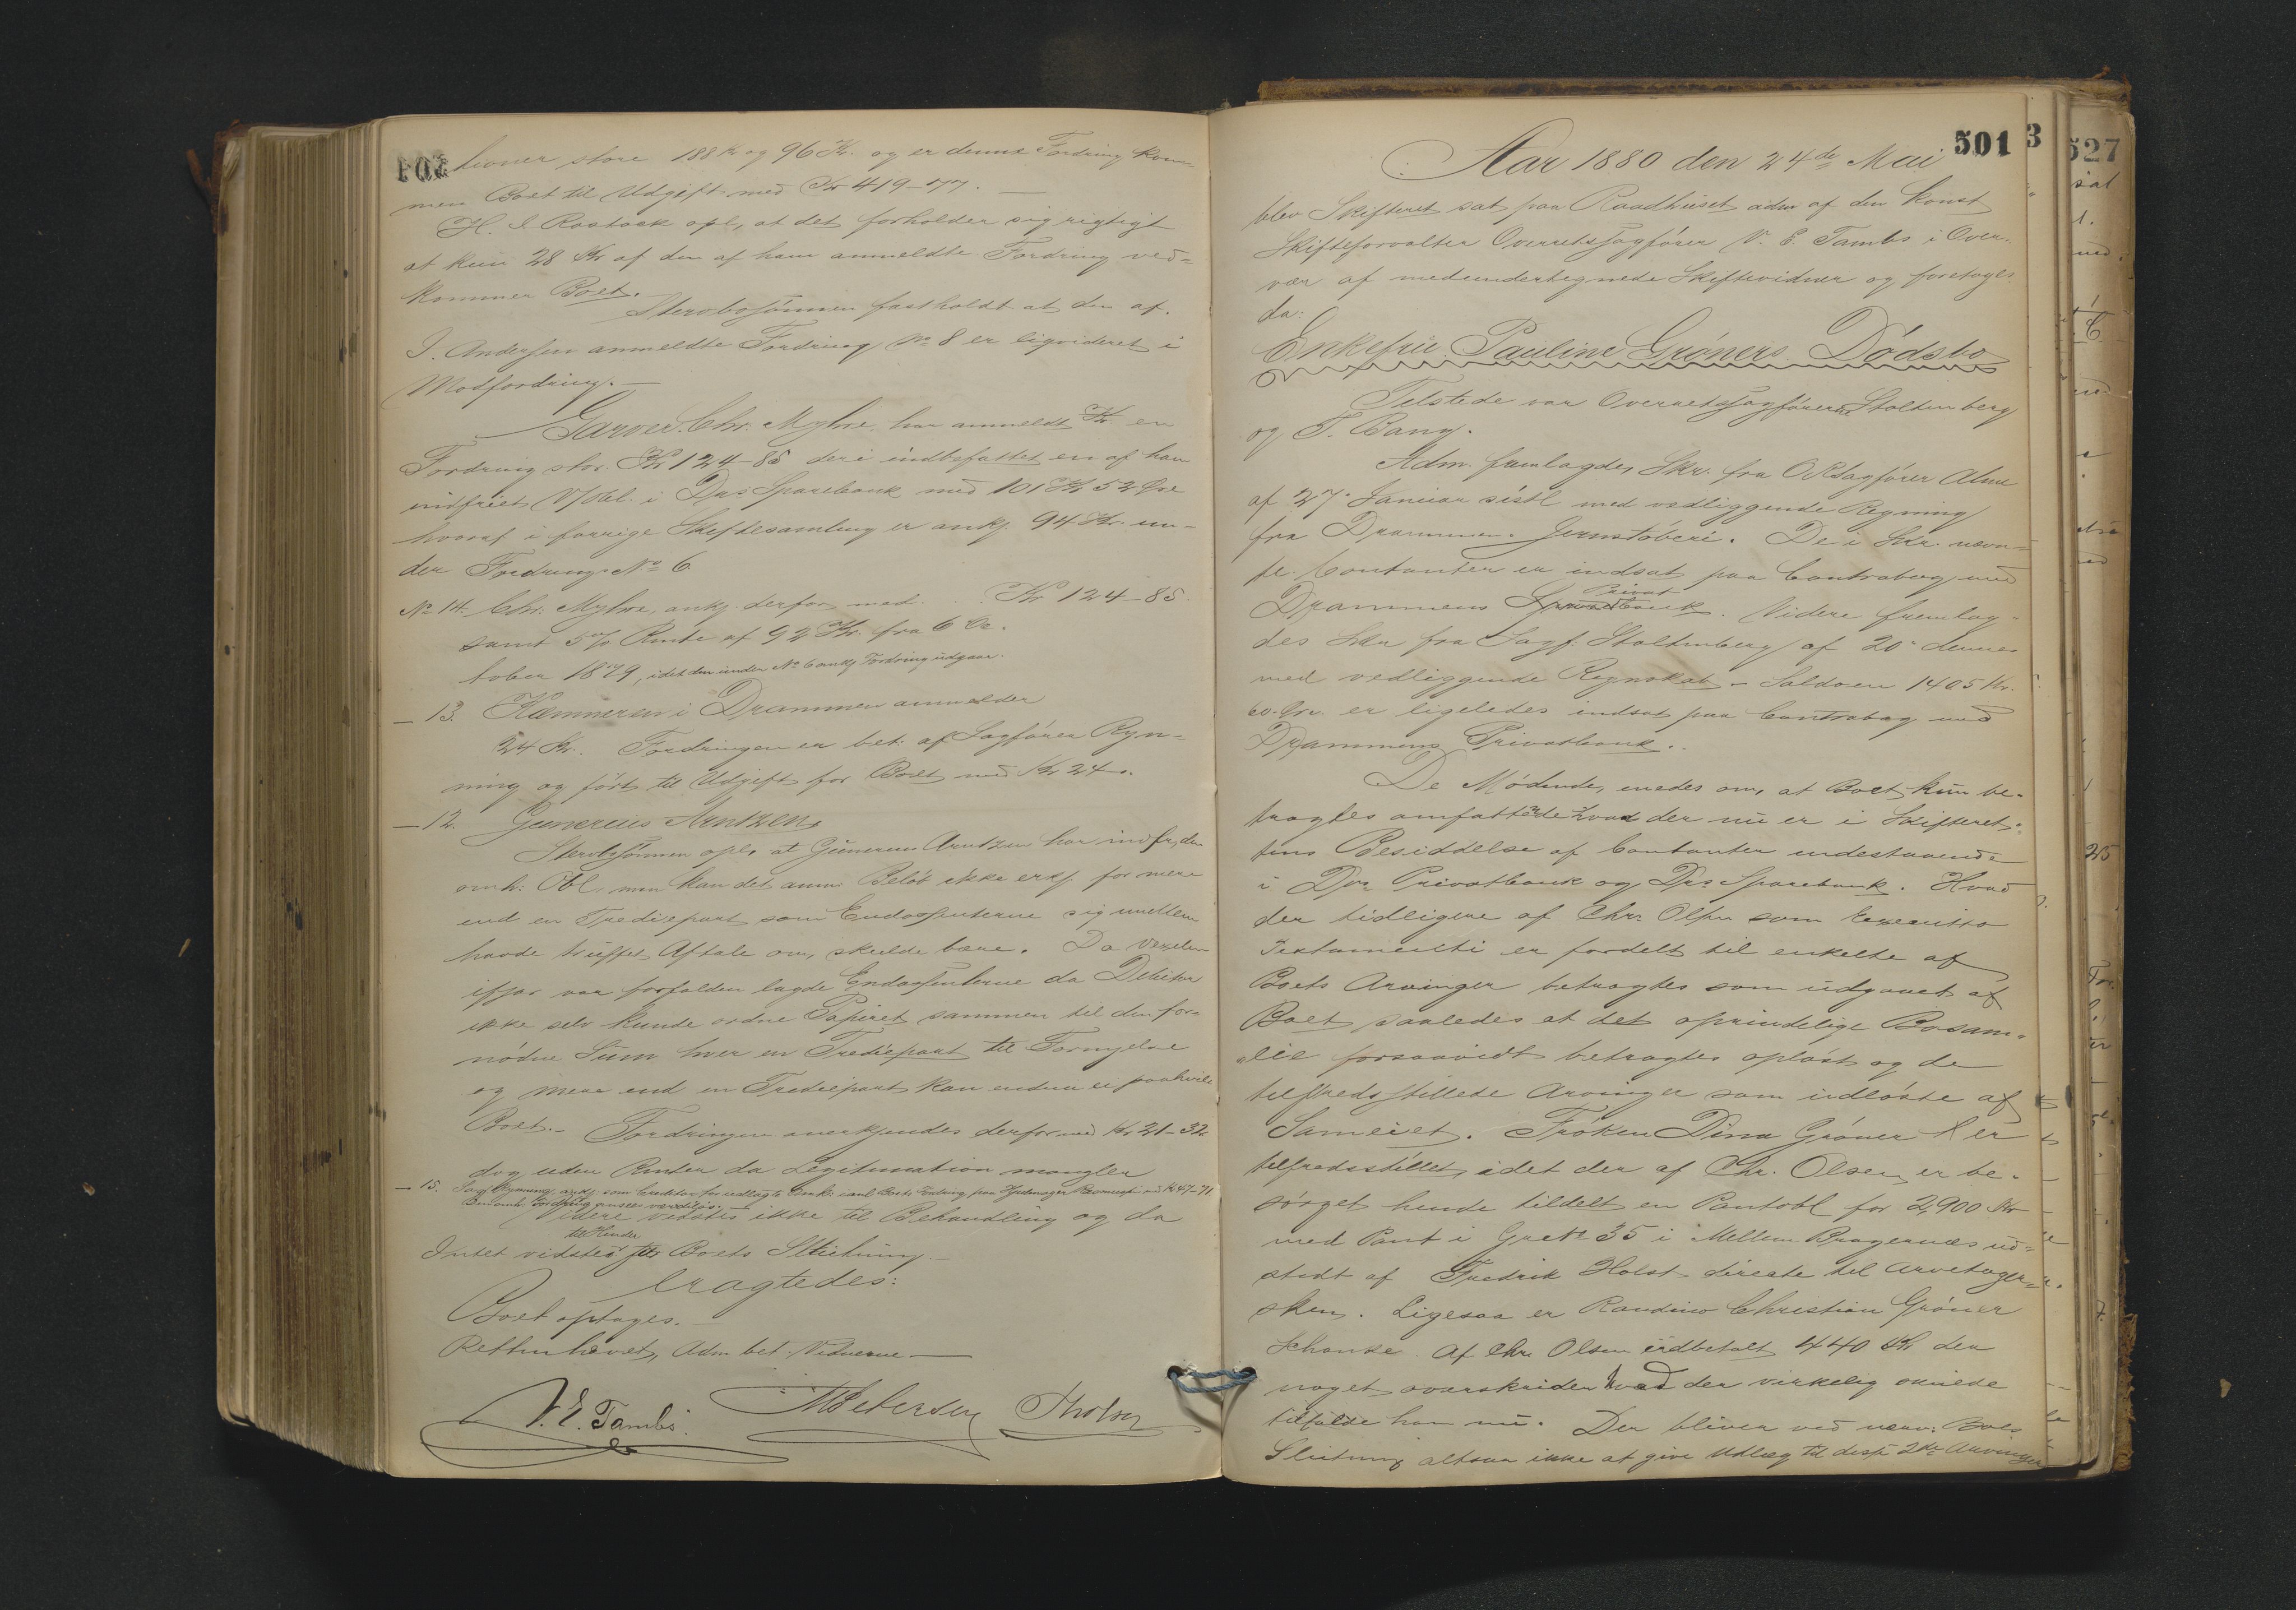 tioner store 188 Kr og 96 Kr. og er denne Fordring kom-
men Boet til Udgift med Kr 419-77. —
H. I Rostock opl, at det forholder sig rigtigt
at kun 28 Kr af den af ham anmeldte Fordring ved=
kommer Boet.
Stervbosönnen fastholdt at den af
J. Andersen anmeldte Fordring No 8 er ligvideret i
Modfordring. —
Garver Chr. Myhre har anmeldt en
Fordring stor Kr 124-85 deri indbefattet en af ham
indfriet V/Obl. i Drs Sparebank med 101 Kr 52 Öre
hvoraf i forrige Skiftesamling er ankj. 94 Kr. un-
der Fordring No 6
No 14. Chr. Myhre, ankj. derfor med . . . Kr 124-85.
samt 5% Rente af 92 Kr. fra 6 Oc-
tober 1879, idet den under No 6 ankj Fordring udgaar.
— 13. Kæmneren i Drammen anmelder
24 Kr. Fordringen er bet. af Sagförer Ryn-
ning og fört til Udgift for Boet med Kr 24-.
— 12. Gunerius Arntzen
Stervbsönnen opl, at Gunerius Arntzen har indfr. den
omh. Obl. men kan det anm. Belöb ikke erkj. for mere
end en Trediepart som Endossenterne sig imellem
havde truffet Aftale om, skulde bære. Da Vexelen
ifjor var forfalden lagde Endossenterne da Debitor
ikke selv kunde ordne Papiret sammen til den for-
nödne Sum hver en Trediepart til Fornyelse
og mere end en Trediepart kan endnu ei paahvile
Boet. — Fordringen anerkjendes derfor med Kr 21-32
dog uden Renter da Legitimation mangler
— 15. Sagf Rynning ankj som Creditor for udlagte Omk: i anl Boets Fordring paa Hjulmager Rasmussen med Kr 47-71
Fordring ansees værdilös. —
Videre vidstes ikke til Behandling og da
til Hinder
Intet vidstes for Boets Slutning —
eragtedes:
Boet optages. —
Retten hævet, Adm bet. Vidnerne —
V. E. Tambs. M Petersen Tholsen
501
Aar 1880 den 24de Mai
blev Skifteret sat paa Raadhuset adm af den konst
Skifteforvalter Overretssagförer V. E. Tambs i Over-
vær af medundertegnede Skiftevidner og foretoges
da:
Enkefru Pauline Gröners Dödsbo
Tilstede var Overretssagförerne Stoltenberg
og T. Bang.
Adm. fremlagde, Skr. fra ORSagförer Alme
af 27. Januar sistl med vedliggende Regning
fra Drammens Jernstöberi. De i Skr. nævn-
te Contanter er indsat paa Contrabog med
Privat
Drammens bank. Videre fremlag-
des Skr fra Sagf. Stoltenberg af 20. dennes
med vedliggende Regnskab - Saldoen 1405 Kr.
60 Öre er ligeledes indsat paa Contrabog med
Drammens Privatbank.
De Mödende, enedes om, at Boet kun be-
tragtes omfattende hvad der nu er i Skifteret-
tens Besiddelse af Contanter indestaaende
i Drs Privatbank og Drs Sparebank. Hvad
der tidligere af Chr. Olsen som Executor
Testamenti er fordelt til enkelte af
Boets Arvinger betragtes som udgaaet af
Boet saaledes at det oprindelige Bosam-
eie forsaavidt betragtes oplöst og de
tilfredsstillede Arvinger som udlöste af
Sameiet. Fröken Dina Gröner er
tilfredsstillet, idet der af Chr. Olsen er be-
sörget hende tildelt en Pantobl for 2,900 Kr
med Pant i Gr No 35 i Mellem Bragernæs ud-
stedt af Fredrik Holst directe til Arvetager-
sken. Ligesaa er Randine Christian Gröner
Schanke af Chr Olsen udbetalt 440 Kr der
noget overskrider hvad der virkelig vilde
tilfalde ham nu. Der bliver ved nærv: Boes
Slutning altsaa ikke at give Udlæg til disse 2de Arvinger
3
527